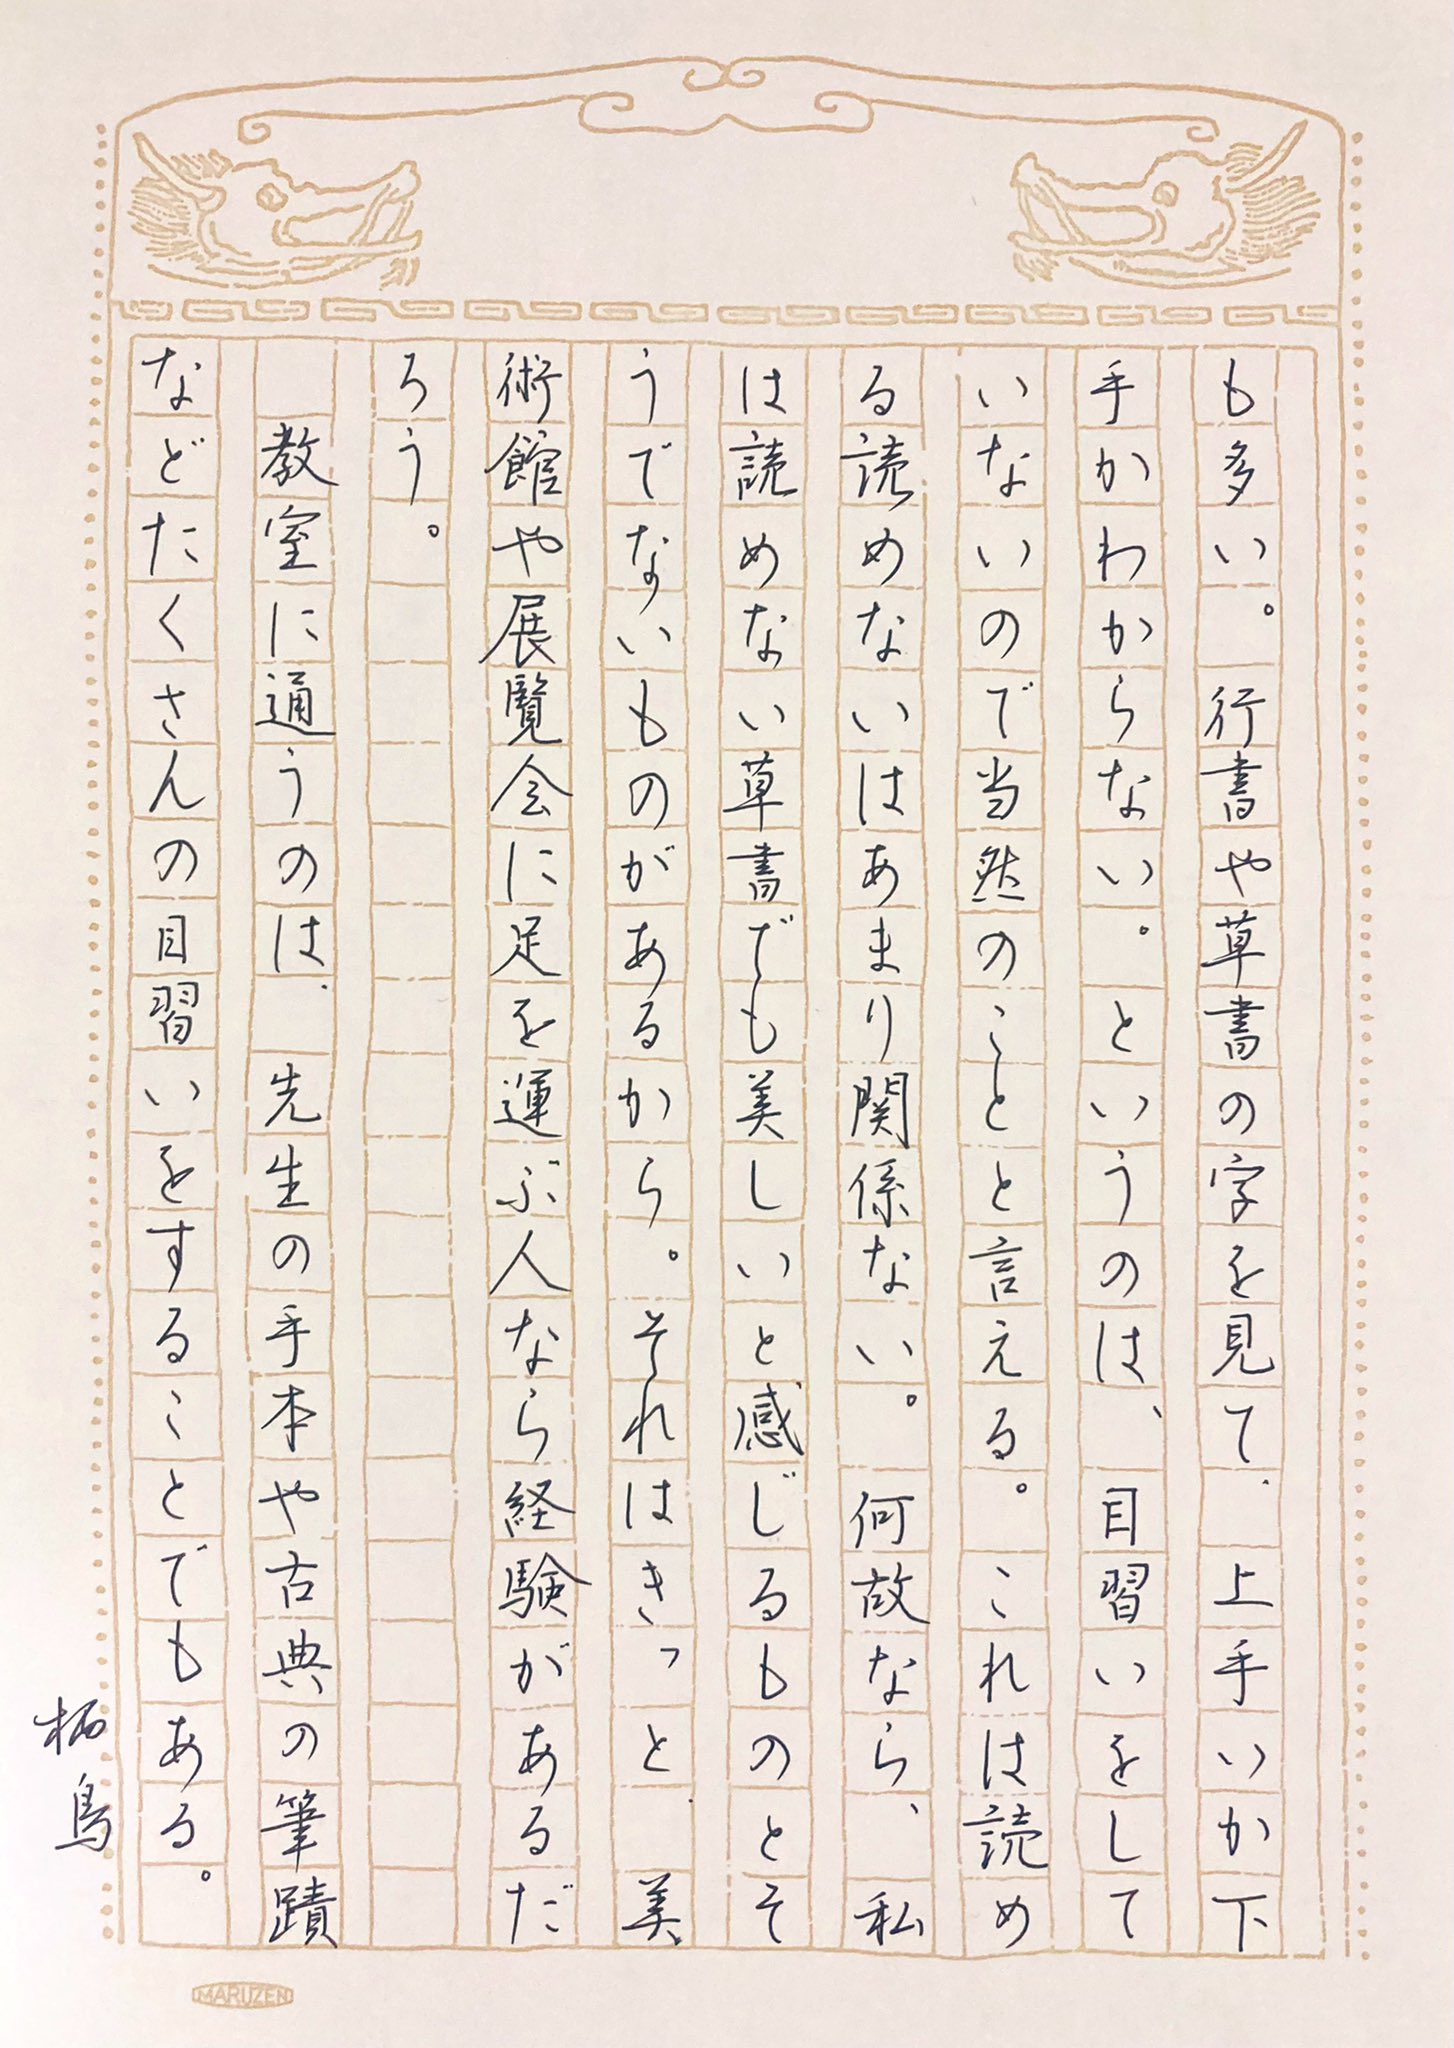 も多い。行書や草書の字を見て、上手いか下
手かわからない。というのは、目習いをして
いないので当然のことと言える。これは読め
る読めないはあまり関係ない。何故なら、私
は読めない草書でも美しいと感じるものとそ
うでないものがあるから。それはきっと美
術館や展覧会に足を運ぶ人なら経験があるだ
ろう。
教室に通うのは、先生の手本や古典の筆蹟
などたくさんの目習いをすることでもある。
栖鳥
MARUZEN